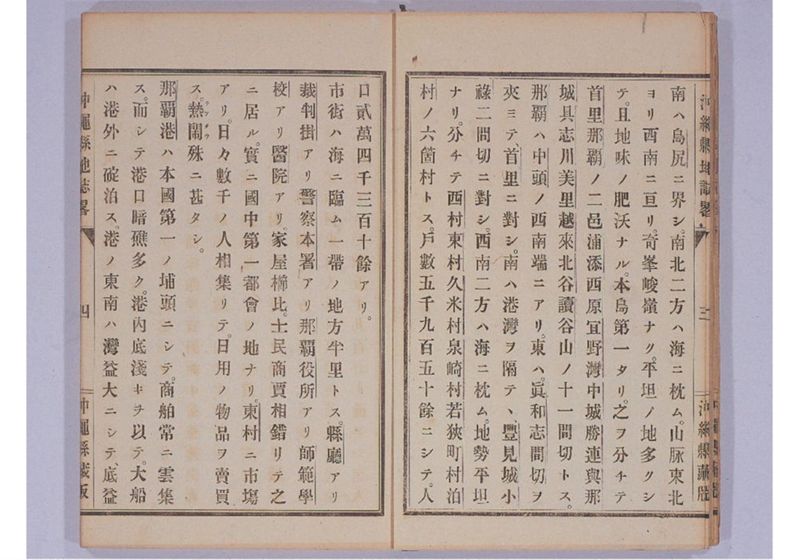 沖繩縣地誌畧 三 沖繩縣藏版
南ハ島尻ニ界シ。南北二方ハ海ニ枕ム。山脈東北
ヨリ西南ニ亘リ。奇峯峻嶺ナク。平坦ノ地多クシ
テ。且地味ノ肥沃ナル。本島第一タリ。之ヲ分チテ
首里那覇ノ二邑浦添西原宜野灣中城勝連與那
城具志川美里越來北谷讀谷山ノ十一間切トス。
那覇ハ中頭ノ西南端ニアリ。東ハ眞和志間切ヲ
夾ミテ首里ニ對シ。南ハ港灣ヲ隔テヽ豐見城小
祿二間切ニ對シ。西南二方ハ海ニ枕ム。地勢平坦
ナリ。分チテ西村東村久米村泉崎村若狹町村泊
村ノ六箇村トス。戸數五千九百五十餘ニシテ。人
口貳萬四千三百十餘アリ。
市街ハ海ニ臨ム一帶ノ地方半里トス。縣廳アリ
裁判掛アリ警察本署アリ那覇役所アリ師範學
校アリ醫院アリ。家屋櫛比。士民商賈相錯リテ之
ニ居ル。實ニ國中第一都會ノ地ナリ。東村ニ市塲
アリ。日々數千ノ人相集リテ。日用ノ物品ヲ賣買
ス。熱閙殊ニ甚タシ。
那覇港ハ本國第一ノ埔頭ニシテ。商舶常ニ雲集
ス。而シテ港口暗礁多ク。港内底淺キヲ以テ。大船
ハ港外ニ碇泊ス。港ノ東南ハ灣益大ニシテ。底益
沖繩縣地誌畧 四 沖繩縣藏版